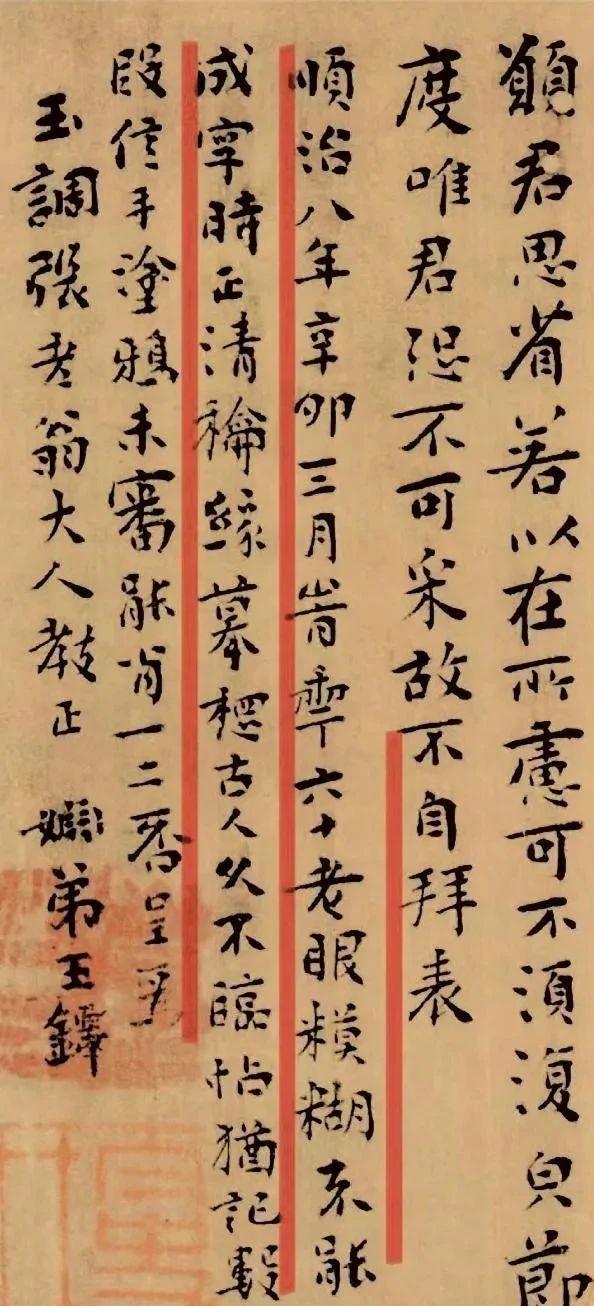 願君思省若以在所慮可不須復皃節
度唯君恐不可采故不自拜表
順治八年辛卯三月六十老眼糢糊不能
成字時正清摹古人久不臨帖猶記數
段信手塗鴉未審能肖一二否呈
玉調張老翁大人教正 姻弟王鐸